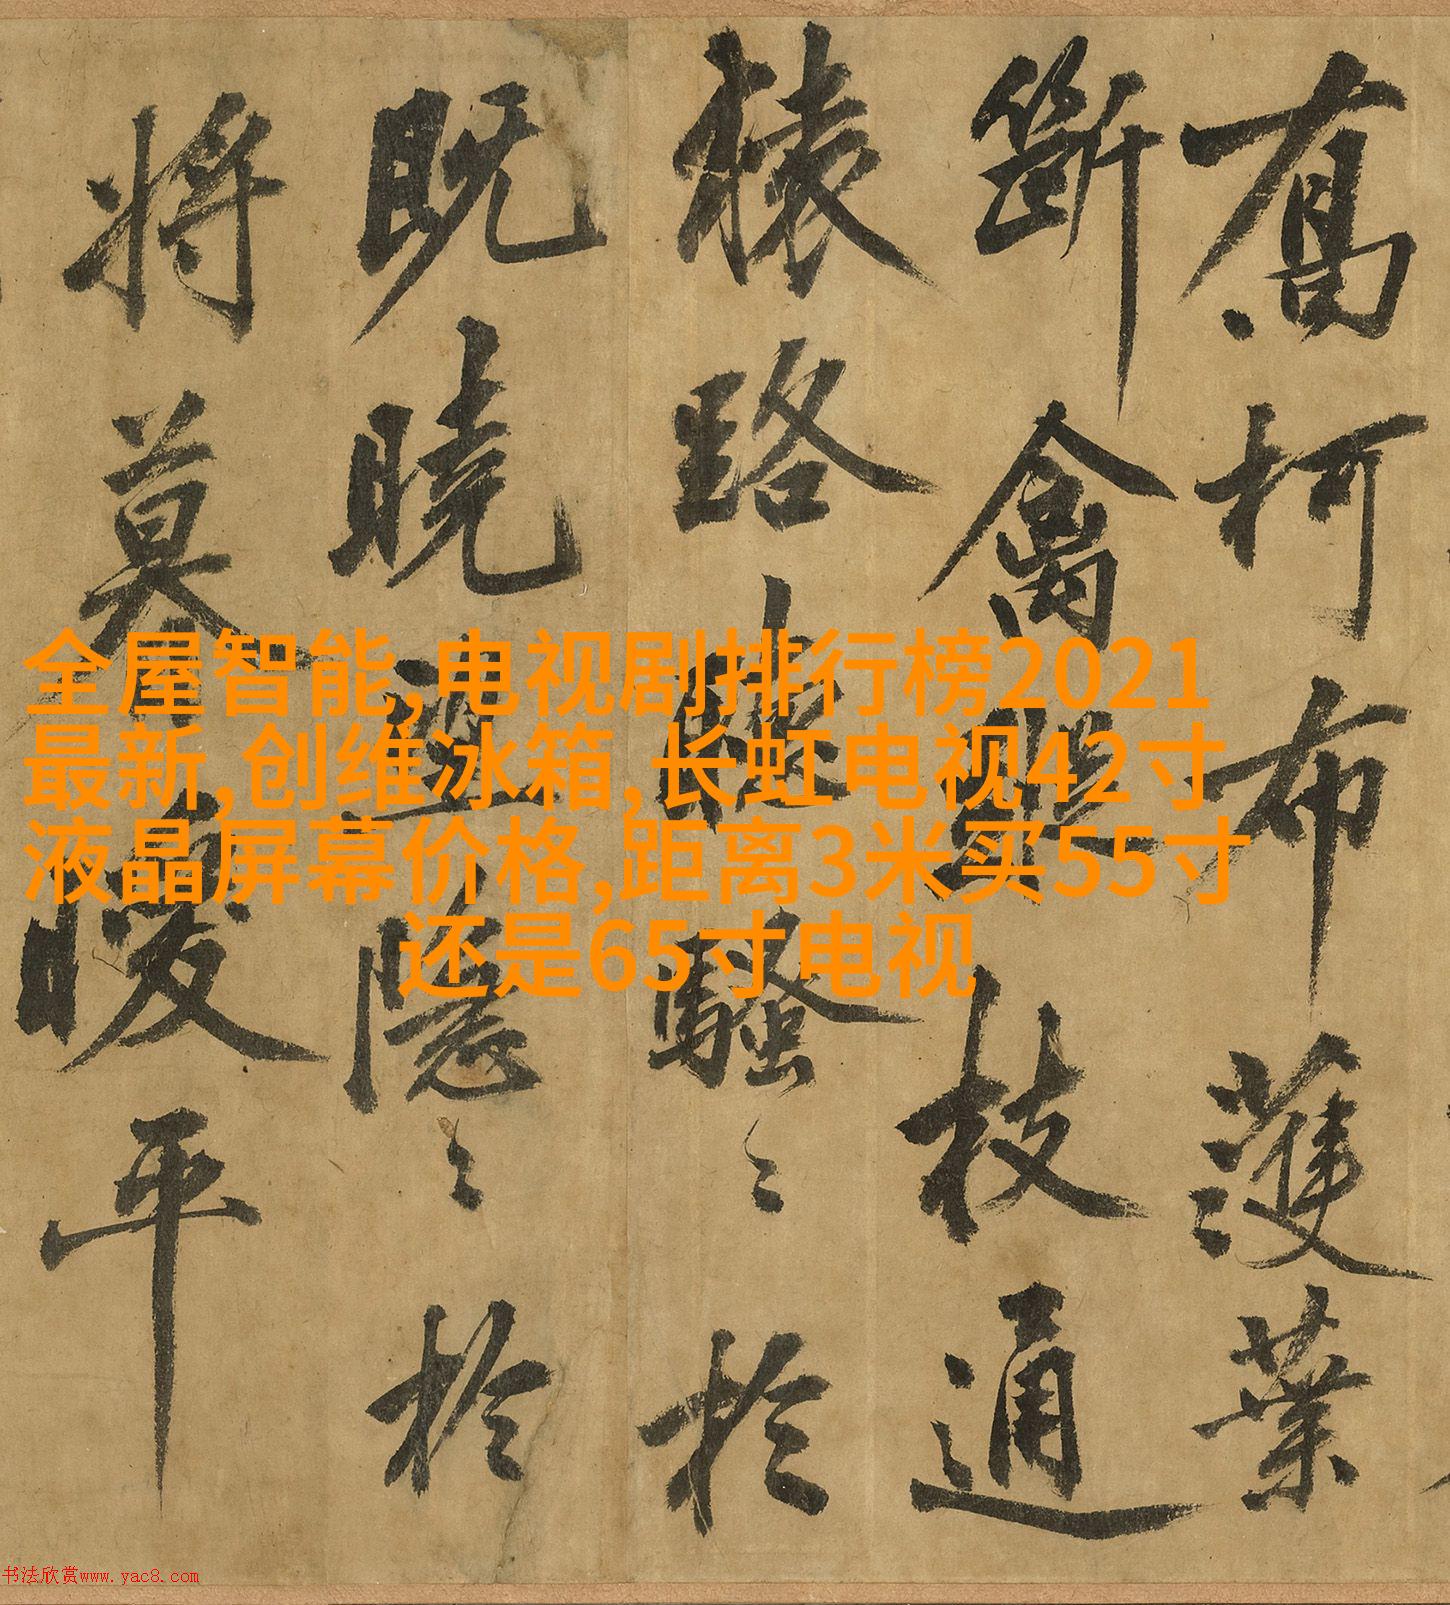 喬柯布濩葉
斷禽枝通
猿路騷〻於
既曉隱〻於
將莫曖平
全屋智能,电视剧排行榜2021
最新,创维冰箱,长虹电视42寸
液晶屏幕价格,距离3米买55寸
还是65寸电视
书法欣赏www.yac8.com